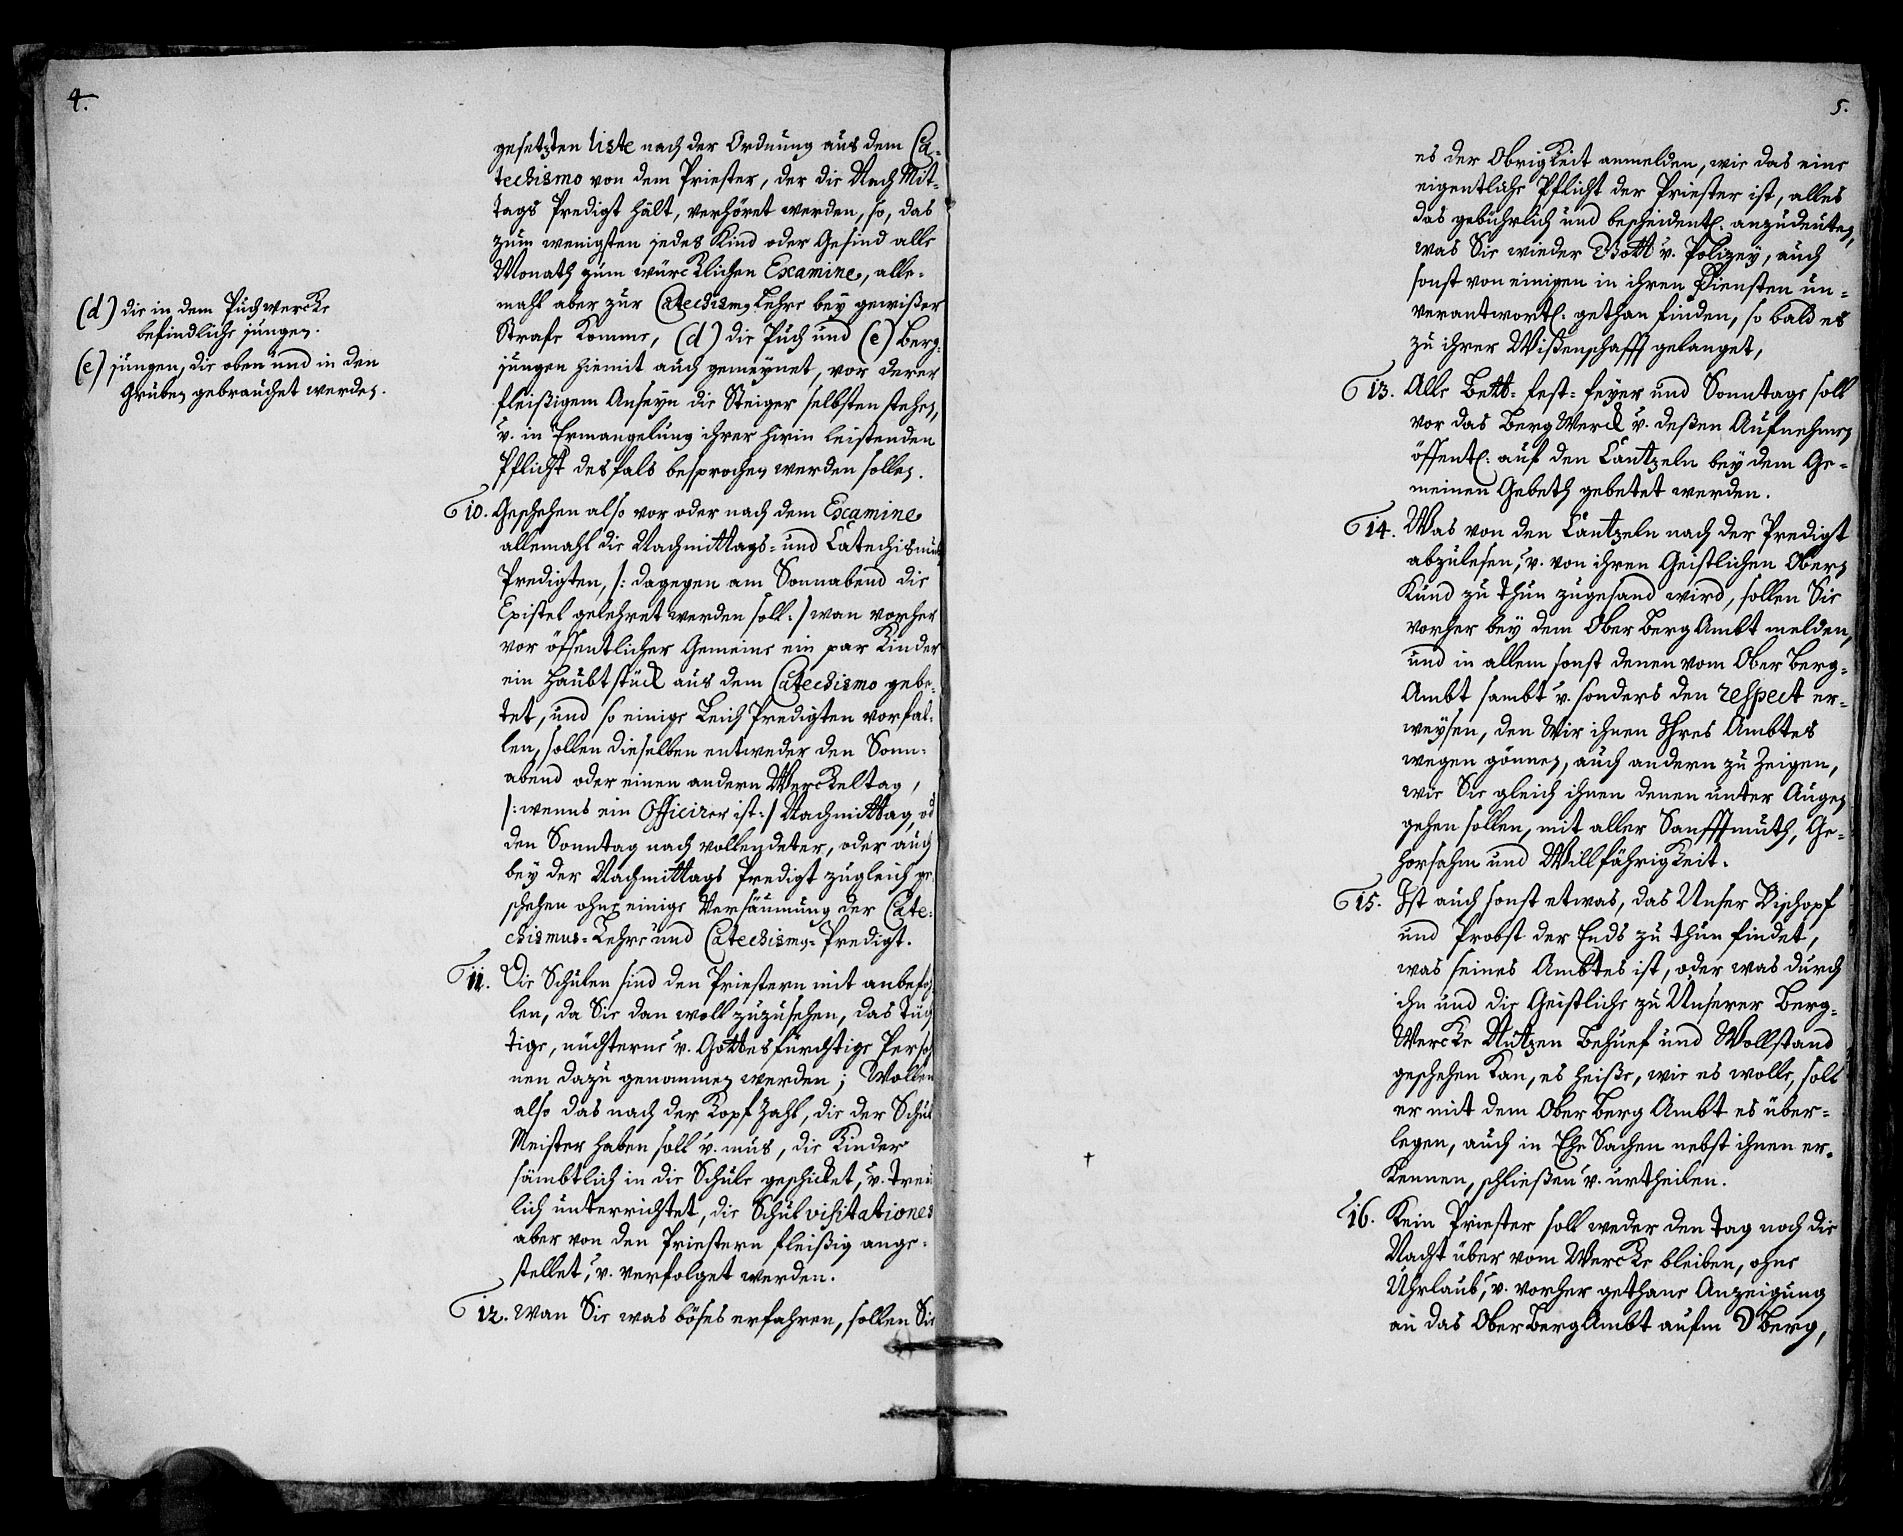 4.
(d) die in dem Puchwercke
befindliche jungen.
(e) jungen, die oben und in den
Gruben gebrauchet werden.
gesetzten liste nach der Ordnung aus dem Ca-
techismo von dem Priester, der die Nach Mit-
tags Predigt hält, verhöret werden, so, das
zum wenigsten jedes Kind oder Gesind alle
Monath zum würcklichen Examine, alle-
mahl aber zur Catechismus Lehre bey gewißer
Strafe Komme, (d) die Puch und (e) Berg-
jungen hiemit auch gemeynet, vor derer
fleißigem Anseyn die Steiger selbsten stehen,
v. in Ermangelung ihrer hirin leistenden
Pflicht desfals besprochen werden sollen.
10. Geschehen also vor oder nach dem Examine
allemahl die Nachmittags- und Catechismus
Predigten, /: dagegen am Sonnabend die
Epistel gelehret werden soll :/ wan vorher
vor öffentlicher Gemeine ein par Kinder
ein Haubtstück aus dem Catechismo gebe-
tet, und so einige Leich Predigten vorfal-
len, sollen dieselben entweder den Sonn-
abend oder einen andern Werckeltag,
/: wenns ein Officirer ist :/ Nachmittag, od
den Sonntag nach vollendeter, oder auch
bey der Nachmittags Predigt zugleich ge-
schehen ohne einige Versäumung der Cate-
chismus-Lehre und Catechismus-Predigt.
11. Die Schulen sind den Priestern mit anbefoh-
len, da Sie dan woll zuzusehen, das Tüg
tige, nüchterne v. Gottesfürchtige Perso-
nen dazu genommen werden; Wollen
also das nach der Kopf Zahl, die der Schul
Meister haben soll v. mus, die Kinder
sämbtlich in die Schule geschicket, v. treu
lich unterrichtet, die Schul visitationes
aber von den Priestern fleißig ange-
stellet, v. verfolget werden.
12. Wan Sie was böses erfahren, sollen Sie
5.
es der Obrigkeit anmelden, wie das eine
eigentliche Pflicht der Priester ist, alles
das gebührlich und bescheidentl. anzudeuten,
was Sie wieder Gott v. Polizey, auch
sonst von einigen in ihren Diensten un-
verantwortl. gethan finden, so bald es
zu ihrer Wißenschafft gelanget,
13. Alle Bett- fest- feyer und Sonntage soll
vor das Berg Werck v. deßen Aufnehmen
öffentl. auf den Cantzeln bey dem Ge-
meinen Gebeth gebetet werden.
14. Was von den Cantzeln nach der Predigt
abzulesen, v. von ihren Geistlichen Obern
Kund zu thun zugesand wird, sollen Sie
vorher bey dem Ober Berg Ambt melden,
und in allem sonst denen vom Ober Berg-
Ambt sambt v. sonders den respect er-
weysen, den Wir ihnen Ihres Ambtes
wegen gönnen, auch andern zu Zeigen,
wie Sie gleich ihnen denen unter Augen
gehen sollen, mit aller Sanfftmuth, Ge-
horsahm und Willfährigkeit.
15. Ist auch sonst etwas, das Unser Bischopf
und Probst der Ends zu thun findet,
was seines Ambtes ist, oder was durch
ihn und die Geistliche zu Unserer Berg-
Wercke Nutzen Behuef und Wollstand
geschehen Kan, es heiße, wie es wolle, soll
er mit dem Ober Berg Ambt es über-
legen, auch in Ehe Sachen nebst ihnen er-
kennen, schließen v. urtheilen.
16. Kein Priester soll weder den Tag noch die
Nacht über vom Wercke bleiben, ohne
Uhrlaub, v. vorher gethane Anzeigung
an das Ober Berg Ambt aufm Berg,